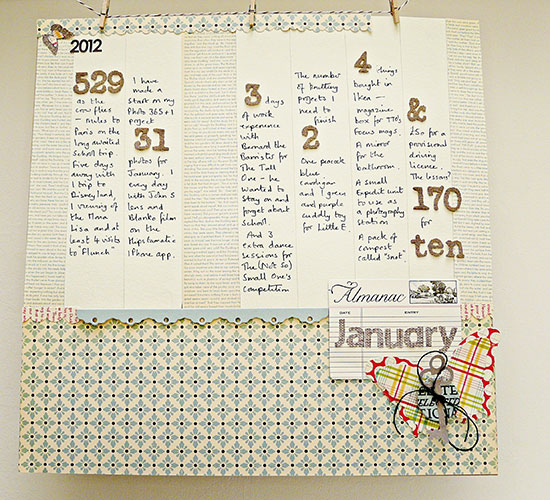 2012
529
as the
crow flies
- miles to
Paris on the
long awaited
School trip.
Five days
away with
1 trip to
Disneyland,
1 viewing of
the Mona
Lisa and at
least 4 visits
to "Flunch"
I have
made a
start on my
Photo 365+1
project
31
photos for
January. 1
every day
with John S
lens and
Blanko film
on the
Hipstamatic
iPhone app.
3 days
of work
experience
with
Bernard the
Barrister for
The Tall
One - he
wanted to
stay on and
forget about
school
And 3
extra dance
sessions for
The (Not So)
Small One's
competition
The number
of knitting
projects I
need to
finish
2
One peacock
blue
cardigan
and 1 green
and purple
cuddly toy
for Little E
4 things
bought in
Ikea -
magazine
box for TTO's
Focus mags.
A mirror
for the
bathroom.
A small
Expedit unit
to use as
a photography
station
A pack of
compost
called "Snat"
&
£50 for a
provisional
driving
licence.
The lesson?
170
for
ten
Almanac
DATE ENTRY
January